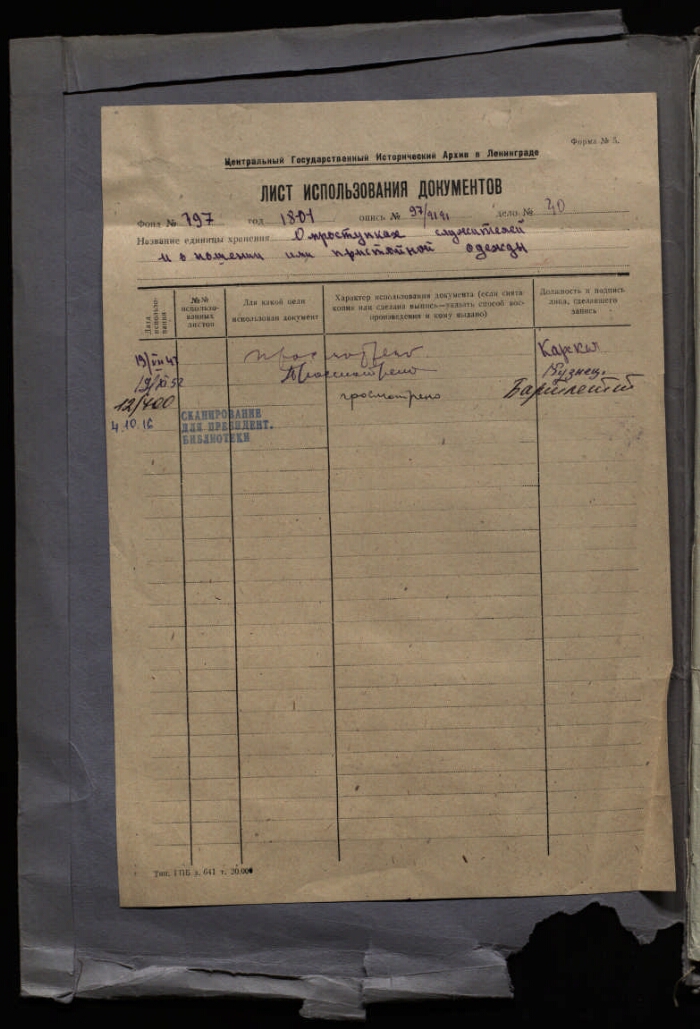 Форма № 5.
Центральный Государственный Исторический Архив в Ленинграде
ЛИСТ ИСПОЛЬЗОВАНИЯ ДОКУМЕНТОВ
Фонд № 797 год 1801 опись № 97/ дело № 40
Название единицы хранения О проступках служителей
и о ношении ими пристойной одежды
Дата использования
№№ использованных листов
Для какой цели использован документ
Характер использования документа (если снята копия или сделана выпись—указать способ воспроизведения и кому выдано)
Должность и подпись лица, сделавшего запись
просмотрено
просмотрено Кузнец.
12/400 просмотрено
4.10.16 СКАНИРОВАНИЕ
ДЛЯ ПРЕЗИДЕНТ.
БИБЛИОТЕКИ
Тип. ГПБ з. 641 т. 20.000